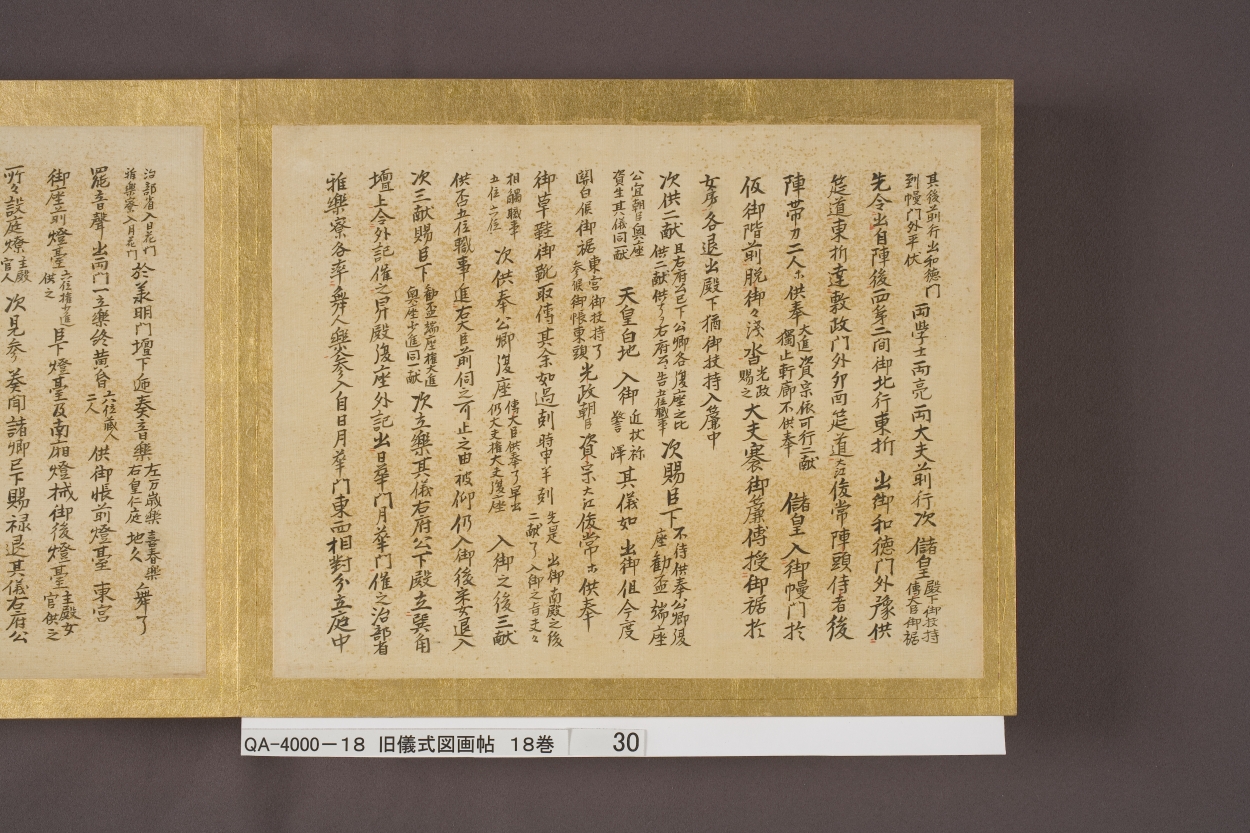 其後前行出和徳門
到幔門外平伏 両学士両亮両大夫前行次 儲皇 殿下御扶持
傳大臣御裾
先令出自陣後西第二間御北行東折 出御和徳門外豫供
筵道東折達敷政門外卯四筵道 大江俊常陣頭侍者後
陣帯刀二人ホ供奉 大進資宗依可行二献
獨止軒廊不供奉 儲皇入御幔門於
仮御階前脱御々浅沓 光政
賜之 大夫褰御簾傳授御裾於
女房各退出殿下猶御扶持入簾中
次供二献 且右府公已下公卿各復座之比
供二献供了右府公告五位職事 次賜臣下 不待供奉公卿復
座勧盃端座
公宜朝臣奥座
資生其儀同一献 天皇白地入御 近杖称
警蹕 其儀如出御但今度
関白候御裾 東宮御扶持了
参候御帳東頭 光政朝臣資宗大江俊常ホ供奉
御草鞋御靴取傳其余如過刻 時申半刻 先是出御南殿之後
二献了入御之旨
相觸職事
五位六位 次供奉公卿復座 傳大臣供奉了早出
仍大夫権大夫復座 入御之後三献
供否五位職事進右大臣前伺之可止之由被仰仍入御後采女退入
次三献賜臣下 勧盃端座権大進
奥座少進同一献 次立樂其儀右府公下殿立巽角
壇上令外記催之昇殿復座外記出日華門月華門催之治部省
雅樂寮各率舞人樂参入自日月華門東西相對分立庭中
治部省入日花門
雅樂寮入月花門 於義明門壇下迊奏音樂 左万歳樂 喜春樂
右皇仁庭 地久 舞了
罷音聲出両門一立樂終黄昏 六位蔵人
二人 供御帳前燈臺 東宮
御座前燈臺 六位権少進
供之 臣下燈臺及南廂燈械御後燈臺 主殿女
官供之
所々設庭燎 主殿
官人 次見参奏聞諸卿已下賜禄退其儀右府公
QA-4000-18 旧儀式図画帖 18巻 30